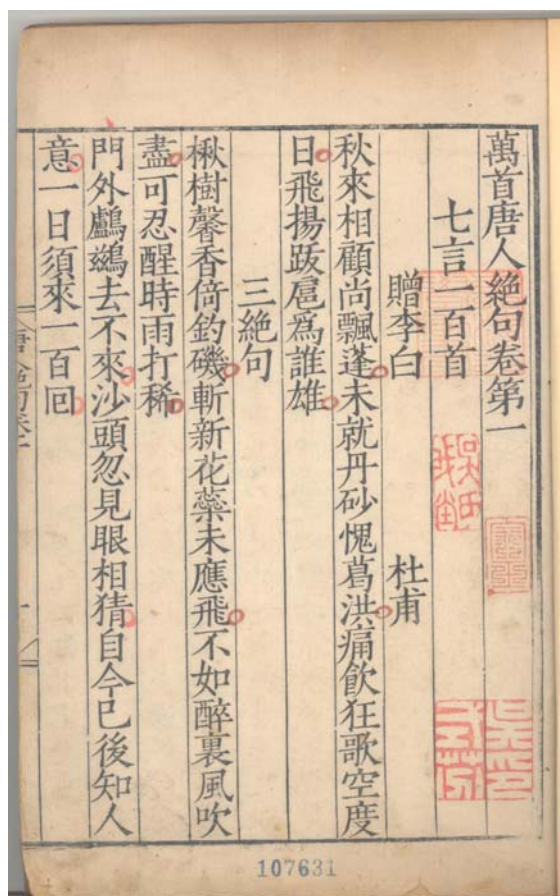 萬首唐人絕句卷第一
七言一百首
贈李白
杜甫
秋來相顧尚飄蓬未就丹砂愧葛洪痛飲狂歌空度
日飛揚跋扈為誰雄
三絕句
楸樹馨香倚釣磯斬新花蘂未應飛不如醉裏風吹
盡可忍醒時雨打稀
門外鸕鷀去不來沙頭忽見眼相猜自今已後知人
意一日須來一百回
107631